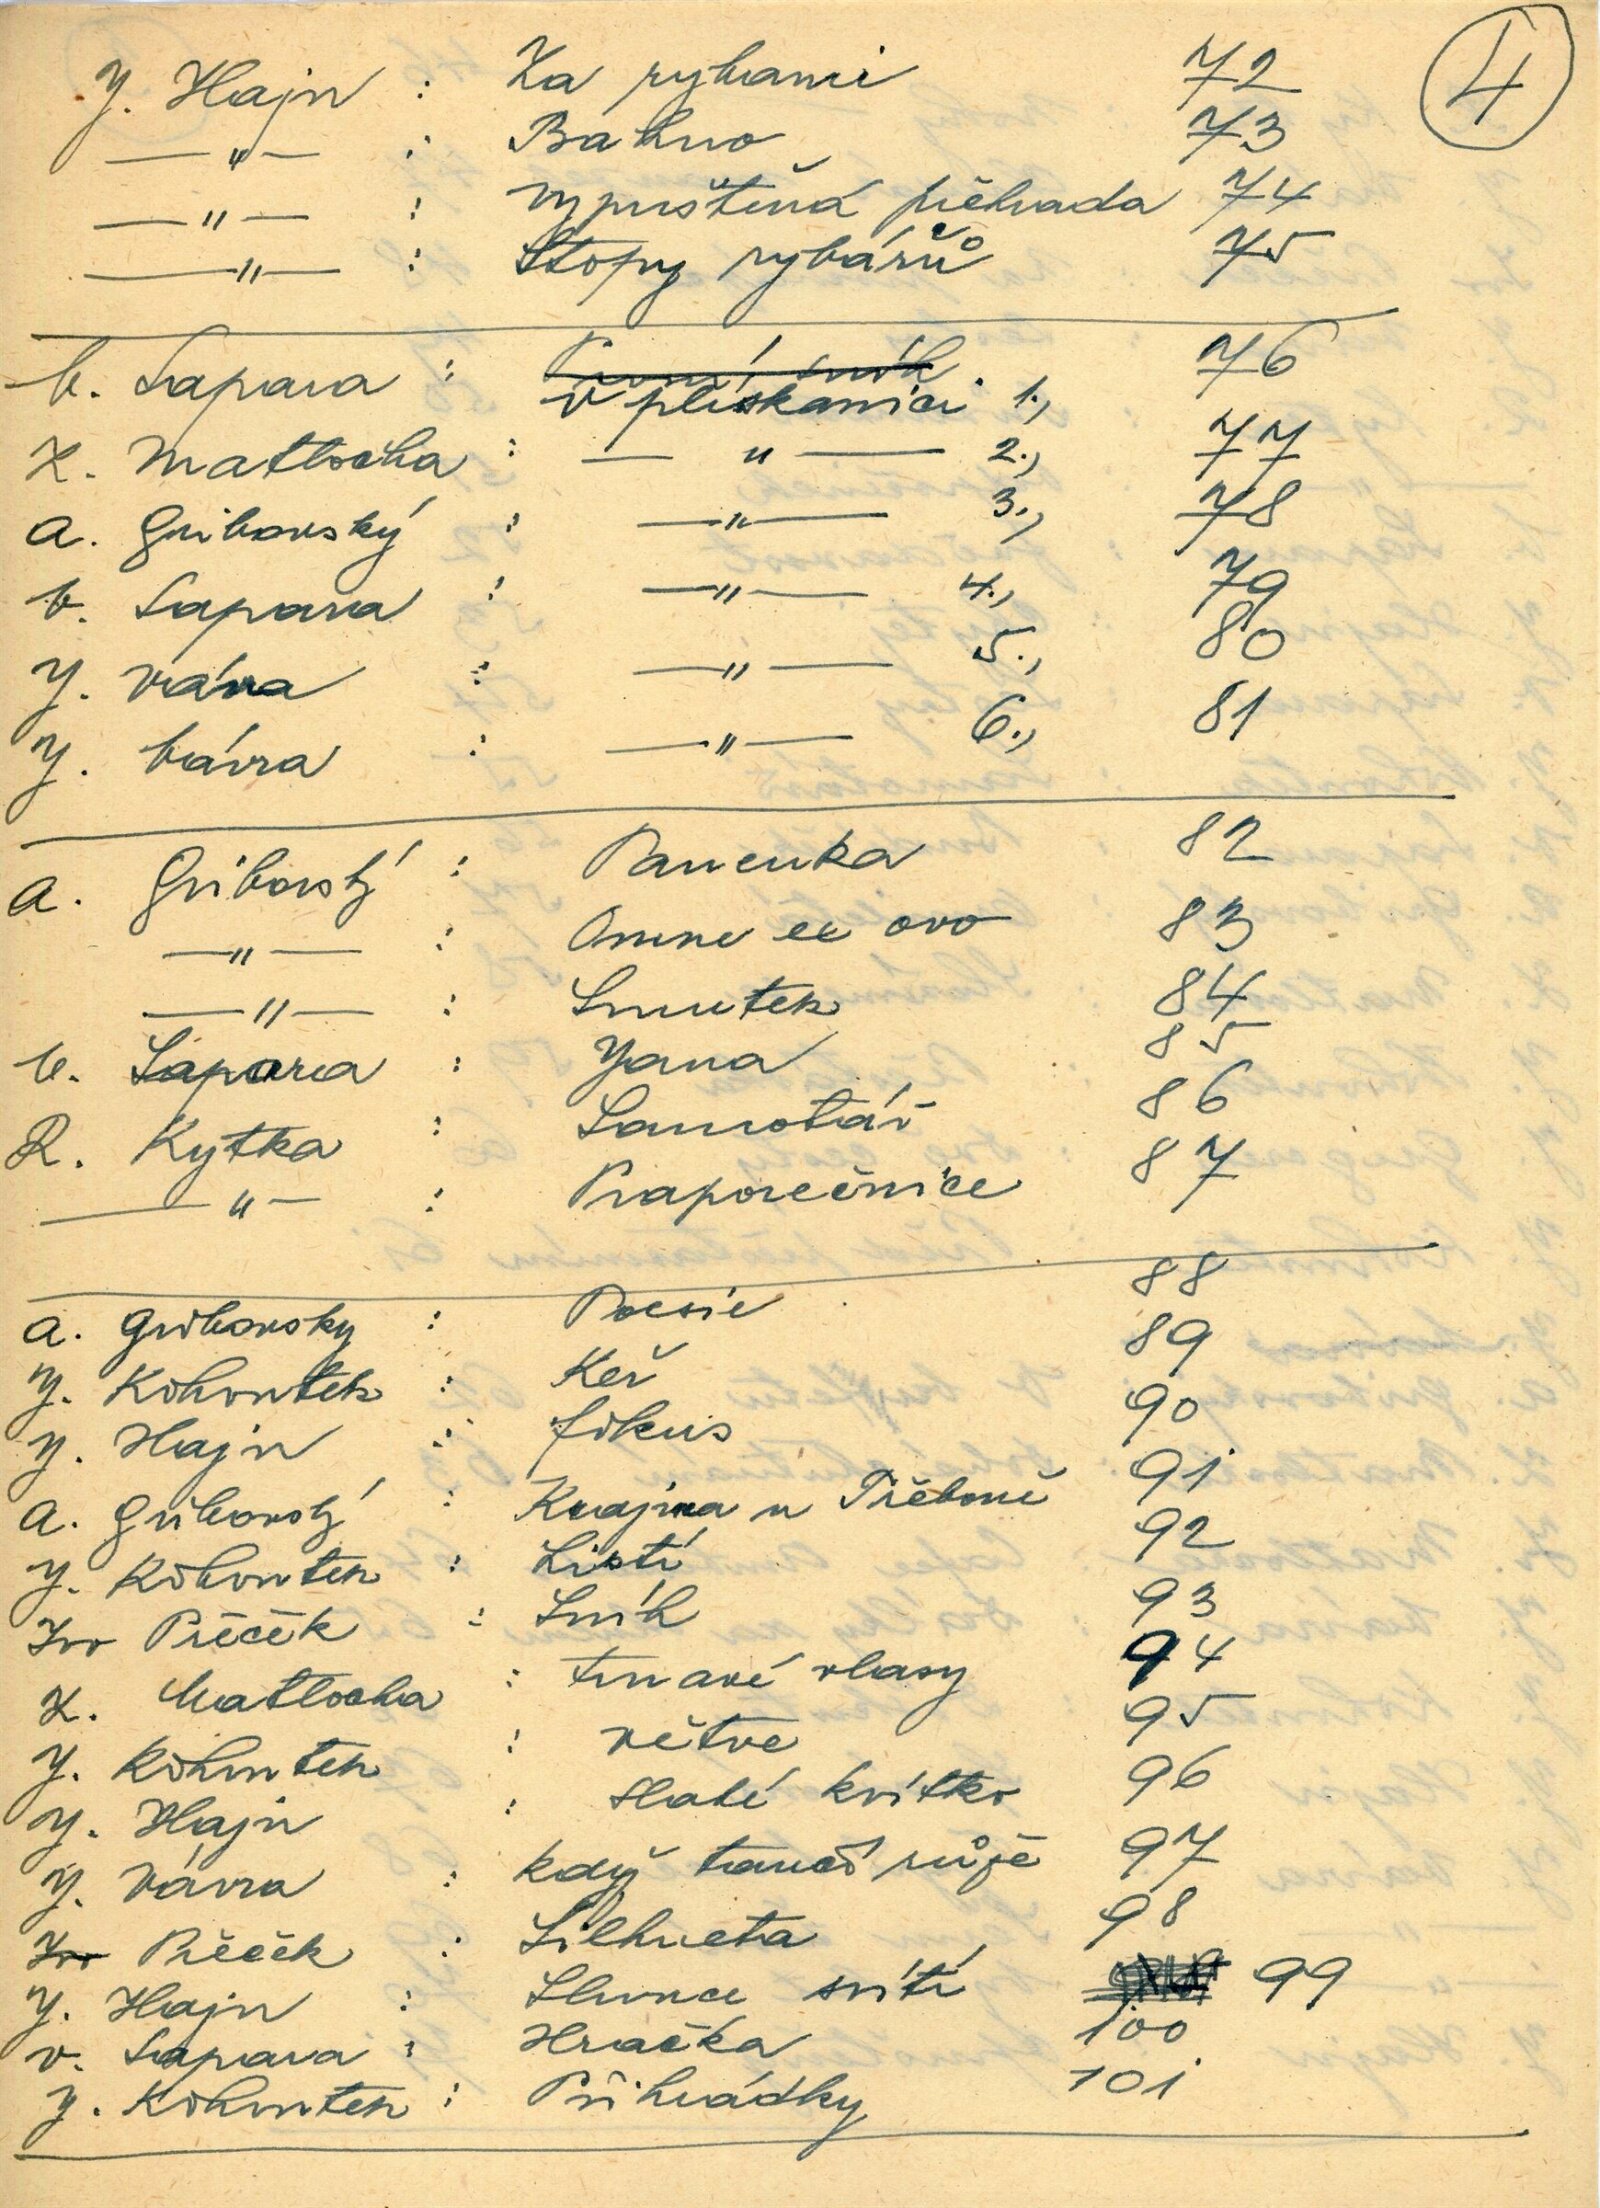 4
J. Hajn : Za rybami 72
—"— : Bahno 73
—"— : Vypuštěná přehrada 74
—"— : Stopy rybářů 75
V. Sapara : První sníh 76
V pliskanici 1.,
Z. Matlocha : —"— 2., 77
A. Gribovský : —"— 3., 78
V. Sapara : —"— 4., 79
J. Vávra : —"— 5., 80
J. Vávra : —"— 6., 81
A. Gribovský : Panenka 82
—"— : Omne ex ovo 83
—"— : Smutek 84
V. Sapara : Jana 85
R. Kytka : Samotář 86
—"— : Praporečnice 87
A. Gribovsky : Poesie 88
J. Kohoutek : Keř 89
J. Hajn : fikus 90
A. Gribovský : Krajina u Třeboně 91
J. Kohoutek : Listí 92
Ivo Přeček : Sníh 93
Z. Matlocha : tmavé vlasy 94
J. Kohoutek : větve 95
J. Hajn : Slabé kvítko 96
J. Vávra : Když tančí růže 97
Ivo Přeček : Silhueta 98
J. Hajn : Slunce svítí 99
V. Sapara : Hračka 100
J. Kohoutek : Přihrádky 101